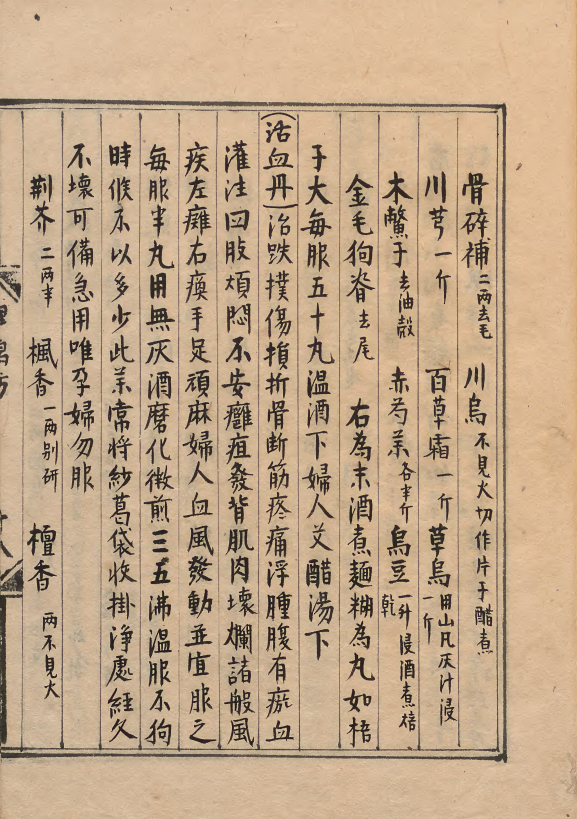 骨碎補二兩去毛 川烏不見火切作片子醋煮
川芎一斤 百草霜一斤 草烏用山凡灰汁浸一斤
木鱉子去油殼 赤芍药各半斤 烏豆一升浸酒煮焙乾
金毛狗脊去尾 右為末酒煮麵糊為丸如梧
子大每服五十丸温酒下婦人艾醋湯下
(活血丹)治跌撲傷損折骨断筋疼痛浮腫腹有瘀血
灌注四肢煩悶不安癰疽發背肌肉壞爛諸般風
疾左癱右瘓手足頑麻婦人血風發動並宜服之
每服半丸用無灰酒磨化微煎三五沸温服不狗
時候不以多少此药常將紗葛袋收掛淨處經久
不壞可備急用唯孕婦勿服
荆芥二兩半 楓香一兩别研 檀香兩不見火